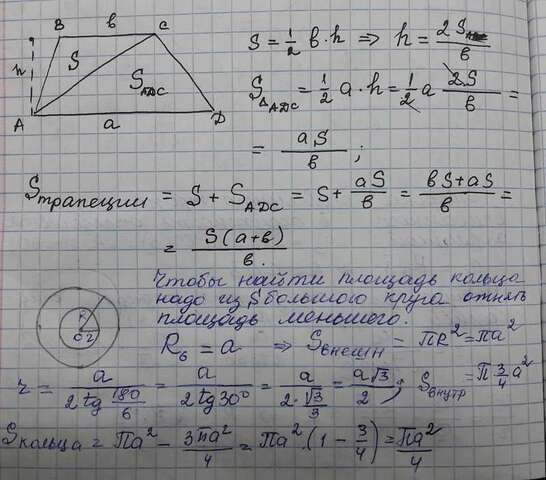 A
h
B
S
b
C
S_ADC
a
D
S = 1/2 b · h ⇒ h = 2S/b
S_ΔADC = 1/2 a · h = 1/2 a · 2S/b =
= aS/b ;
S трапеции = S + S_ADC = S + aS/b = (bS + aS)/b =
= S(a+b)/b
Чтобы найти площадь кольца
надо из большого круга отнять
площадь меньшего.
R
O
r
R₆ = a ⇒ S внешн = πR² = πa²
r = a/(2tg 180/6) = a/(2tg30°) = a/(2·√3/3) = a√3/2, S внутр = π 3/4 a²
S кольца = πa² - 3πa²/4 = πa² · (1 - 3/4) = πa²/4